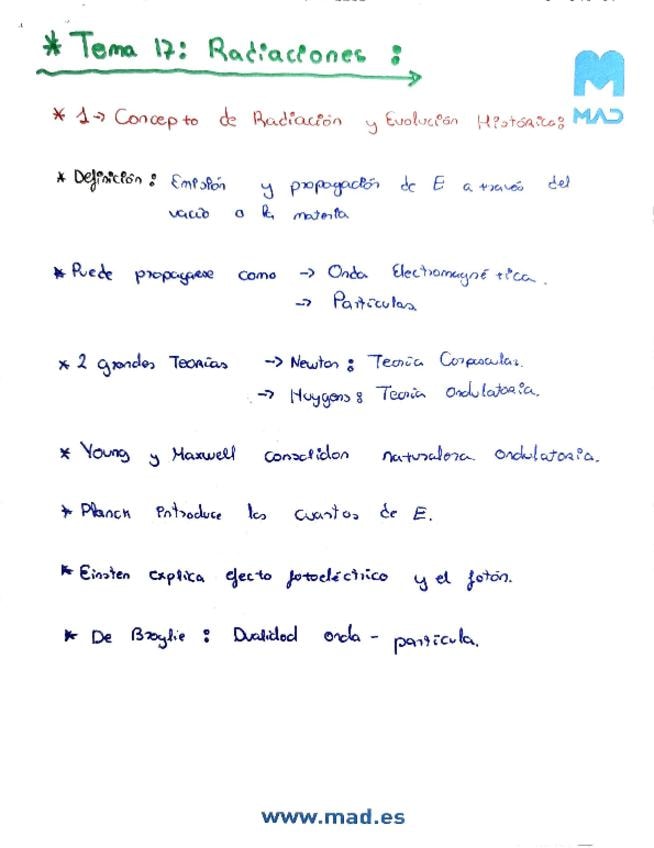 * Tema 17: Radiaciones:
MAD
* 1→ Concepto de Radiación y Evolución Histórica:
* Definición: Emisión y propagación de E a través del
vacío o la materia
* Puede propagarse como → Onda Electromagnética.
→ Partículas
* 2 grandes Teorías → Newton: Teoría Corpuscular.
→ Huygens: Teoría Ondulatoria.
* Young y Maxwell consolidan naturaleza ondulatoria.
* Planck introduce los cuantos de E.
* Einsten explica efecto fotoeléctrico y el fotón.
* De Broglie: Dualidad onda - partícula.
www.mad.es